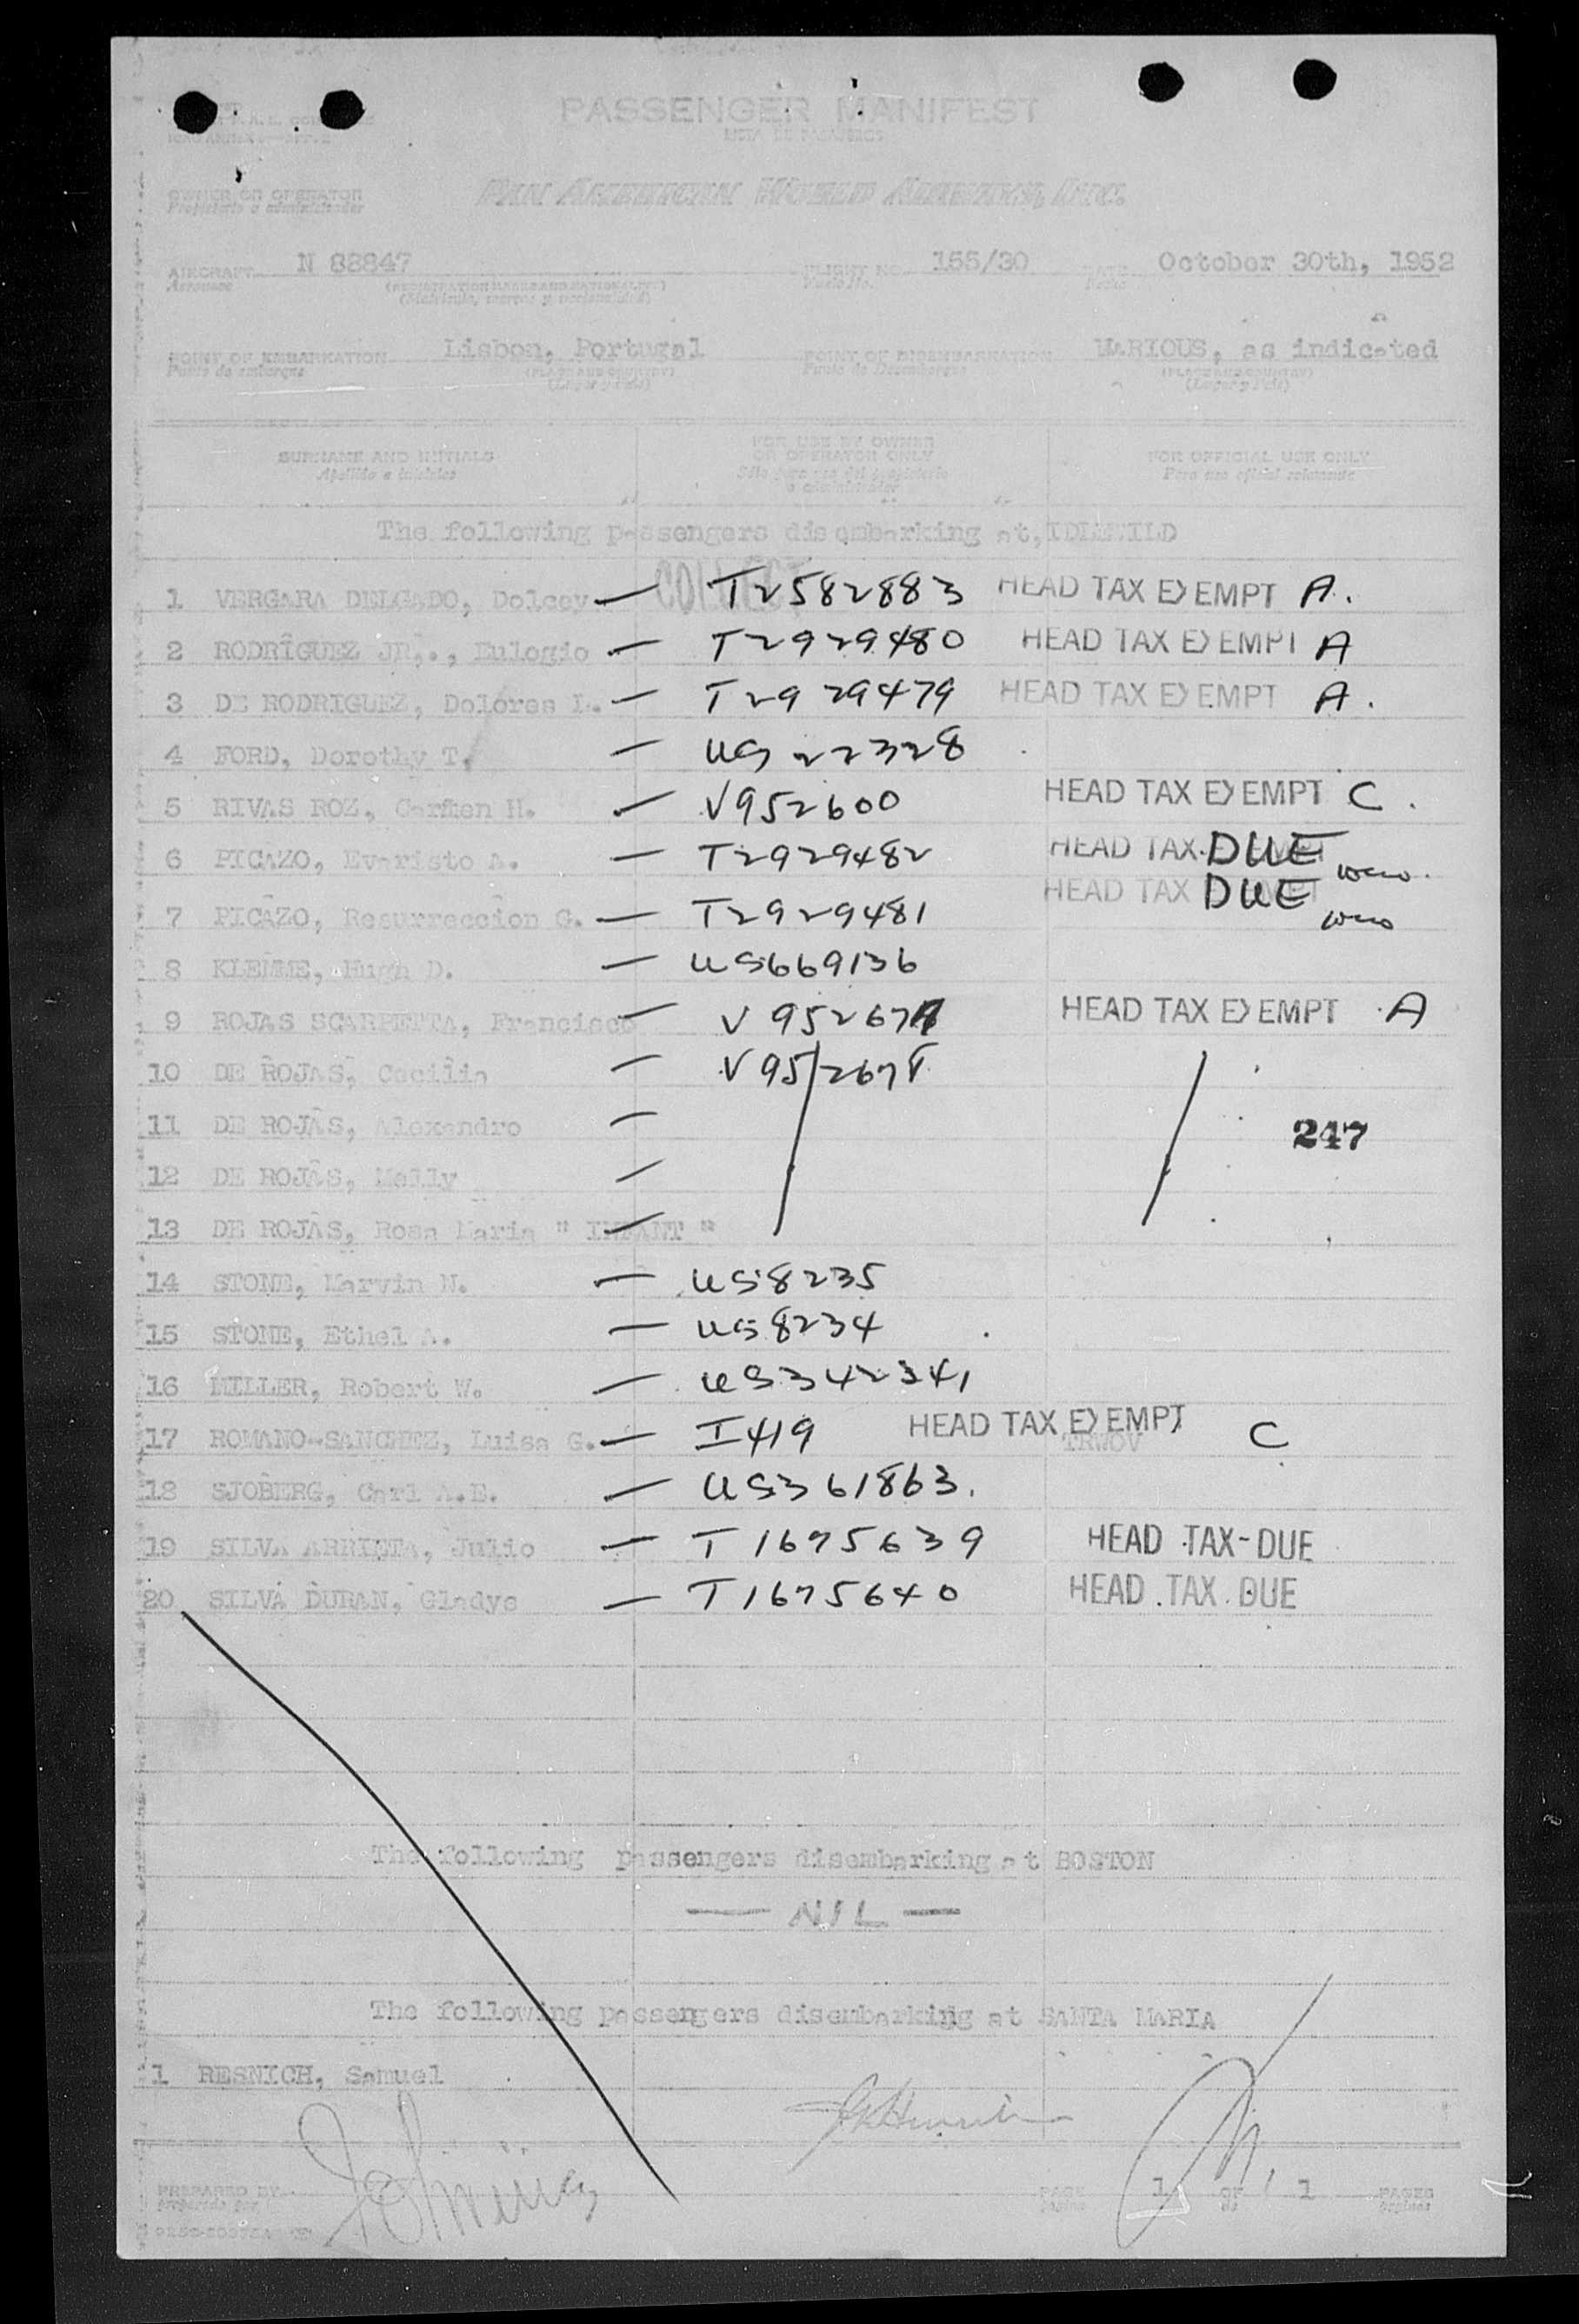 PASSENGER MANIFEST
LISTA DE PASAJEROS
OWNER OR OPERATOR
Propietario o administrador
PAN AMERICAN WORLD AIRWAYS, INC.
AIRCRAFT N 88847 FLIGHT NO. 155/30 DATE October 30th, 1952
Aeronave (REGISTRATION MARKS AND NATIONALITY) Vuelo No. Fecha
(Matrícula, marcas y nacionalidad)
POINT OF EMBARKATION Lisbon, Portugal POINT OF DISEMBARKATION VARIOUS, as indicated
Punto de embarque (PLACE AND COUNTRY) Punto de Desembarque (PLACE AND COUNTRY)
(Lugar y País) (Lugar y País)
SURNAME AND INITIALS FOR USE BY OWNER OR OPERATOR ONLY FOR OFFICIAL USE ONLY
Apellido e iniciales Sólo para uso del propietario o administrador Para uso oficial solamente
The following passengers disembarking at, IDLEWILD
COLLECT
1 VERGARA DELGADO, Dolcey — T2582883 HEAD TAX EXEMPT A.
2 RODRIGUEZ JR., Eulogio — T2929480 HEAD TAX EXEMPT A
3 DE RODRIGUEZ, Dolores L. — T2929479 HEAD TAX EXEMPT A.
4 FORD, Dorothy T. — US 22328
5 RIVAS ROZ, Carmen H. — V952600 HEAD TAX EXEMPT C.
6 PICAZO, Evaristo A. — T2929482 HEAD TAX DUE
7 PICAZO, Resurreccion G. — T2929481 HEAD TAX DUE
8 KLEMME, Hugh D. — US669136
9 ROJAS SCARPETTA, Francisco — V 952677 HEAD TAX EXEMPT A
10 DE ROJAS, Cecilia — V952678
11 DE ROJAS, Alexandro — 247
12 DE ROJAS, Melly —
13 DE ROJAS, Rosa Maria " INFANT "
14 STONE, Marvin N. — US8235
15 STONE, Ethel A. — US8234
16 MILLER, Robert W. — US342341
17 ROMANO-SANCHEZ, Luisa G. — I419 HEAD TAX EXEMPT TRWOV C
18 SJOBERG, Carl A.E. — US361863.
19 SILVA ARRIETA, Julio — T1675639 HEAD TAX-DUE
20 SILVA DURAN, Gladys — T1675640 HEAD TAX DUE
The following passengers disembarking at BOSTON
— NIL —
The following passengers disembarking at SANTA MARIA
1 RESNICH, Samuel
PREPARED BY PAGE 1 OF 1 PAGES